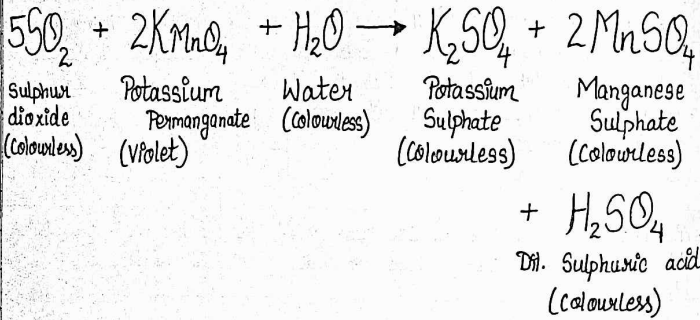 5SO₂ + 2KMnO₄ + H₂O → K₂SO₄ + 2MnSO₄
Sulphur dioxide (Colourless) Potassium Permanganate (Violet) Water (Colourless) Potassium Sulphate (Colourless) Manganese Sulphate (Colourless)
+ H₂SO₄
Dil. Sulphuric acid
(Colourless)